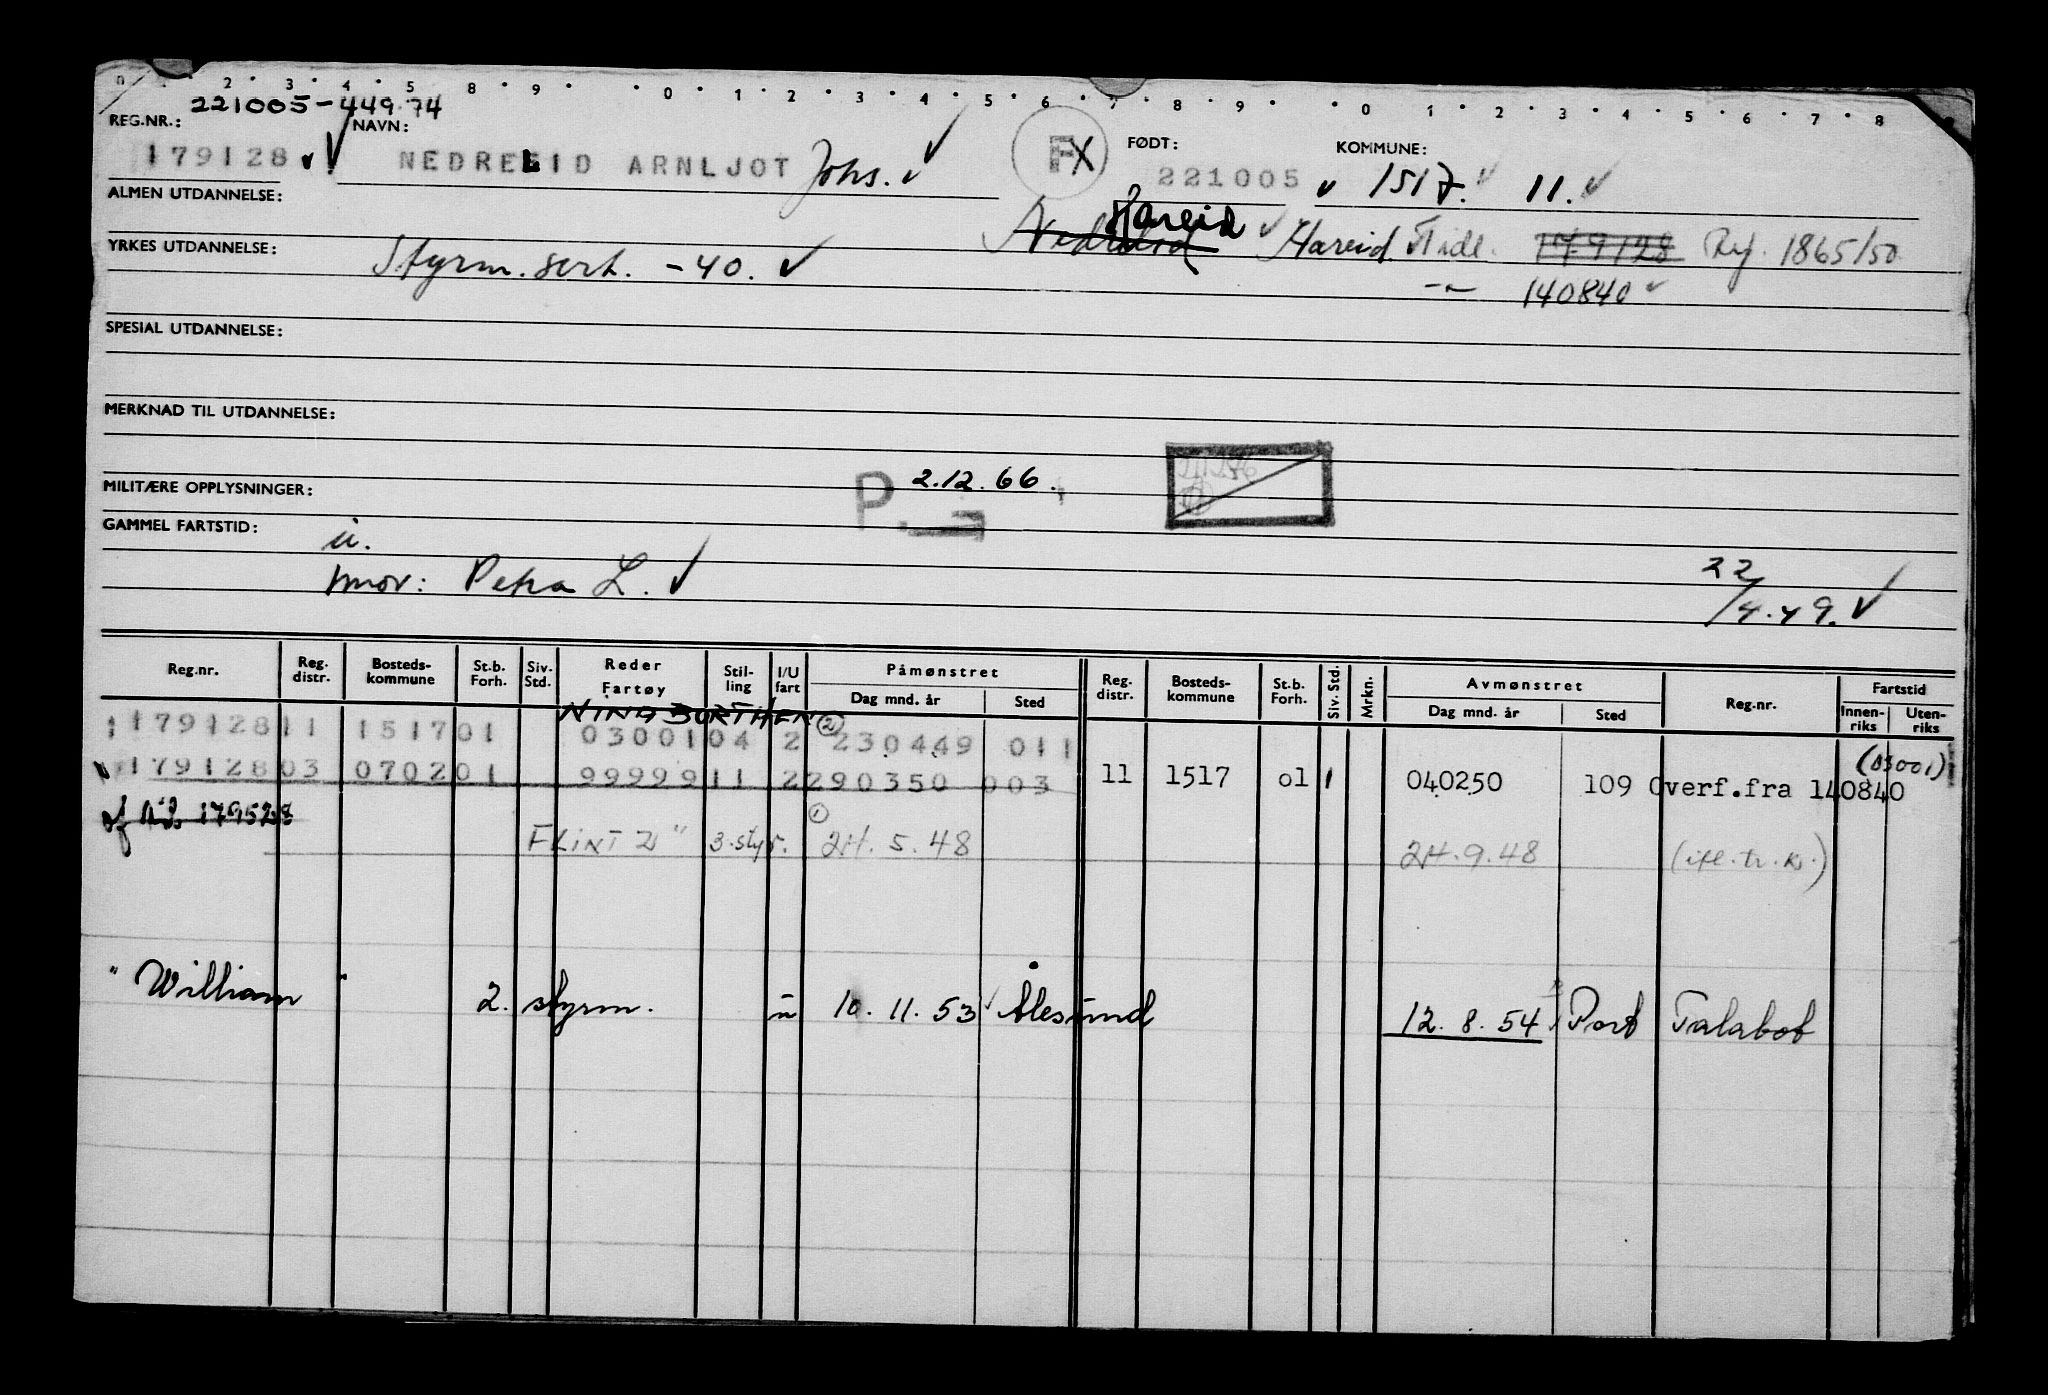 0 2 3 4 5 8 9 0 1 2 3 4 5 6 7 8 9 0 1 2 3 4 5 6 7 8
221005-449 74
REG.NR.: NAVN: FØDT: KOMMUNE:
179128 NEDRELID ARNLJOT Johs. FX 221005 1517. 11.
ALMEN UTDANNELSE:
Hareid Hareid Tidl. 179128 Ref. 1865/50
YRKES UTDANNELSE: Styrm.sert. -40.
-"- 140840
SPESIAL UTDANNELSE:
MERKNAD TIL UTDANNELSE:
MILITÆRE OPPLYSNINGER: P. 2.12.66.
GAMMEL FARTSTID: u.
mor: Petra L. 22/4.49.
Reg.nr. Reg. distr. Bosteds-kommune St.b. Forh. Siv. Std. Reder Fartøy Stil-ling I/U fart Påmønstret Dag mnd. år Sted Reg. distr. Bosteds-kommune St.b. Forh. Siv. Std. Mrkn. Avmønstret Dag mnd. år Sted Reg.nr. Fartstid Innen-riks Uten-riks
NINA BORTHEN (2)
179128 11 1517 01 03001 04 2 230449 011
179128 03 0702 01 99999 11 2 290350 003 11 1517 01 1 040250 109 Overf.fra 140840 (03001)
179528
FLINT II" 3.styr. (1) 24.5.48 24.9.48
"William" 2. styrm. u 10.11.53 Ålesund 12.8.54 Port Talabot